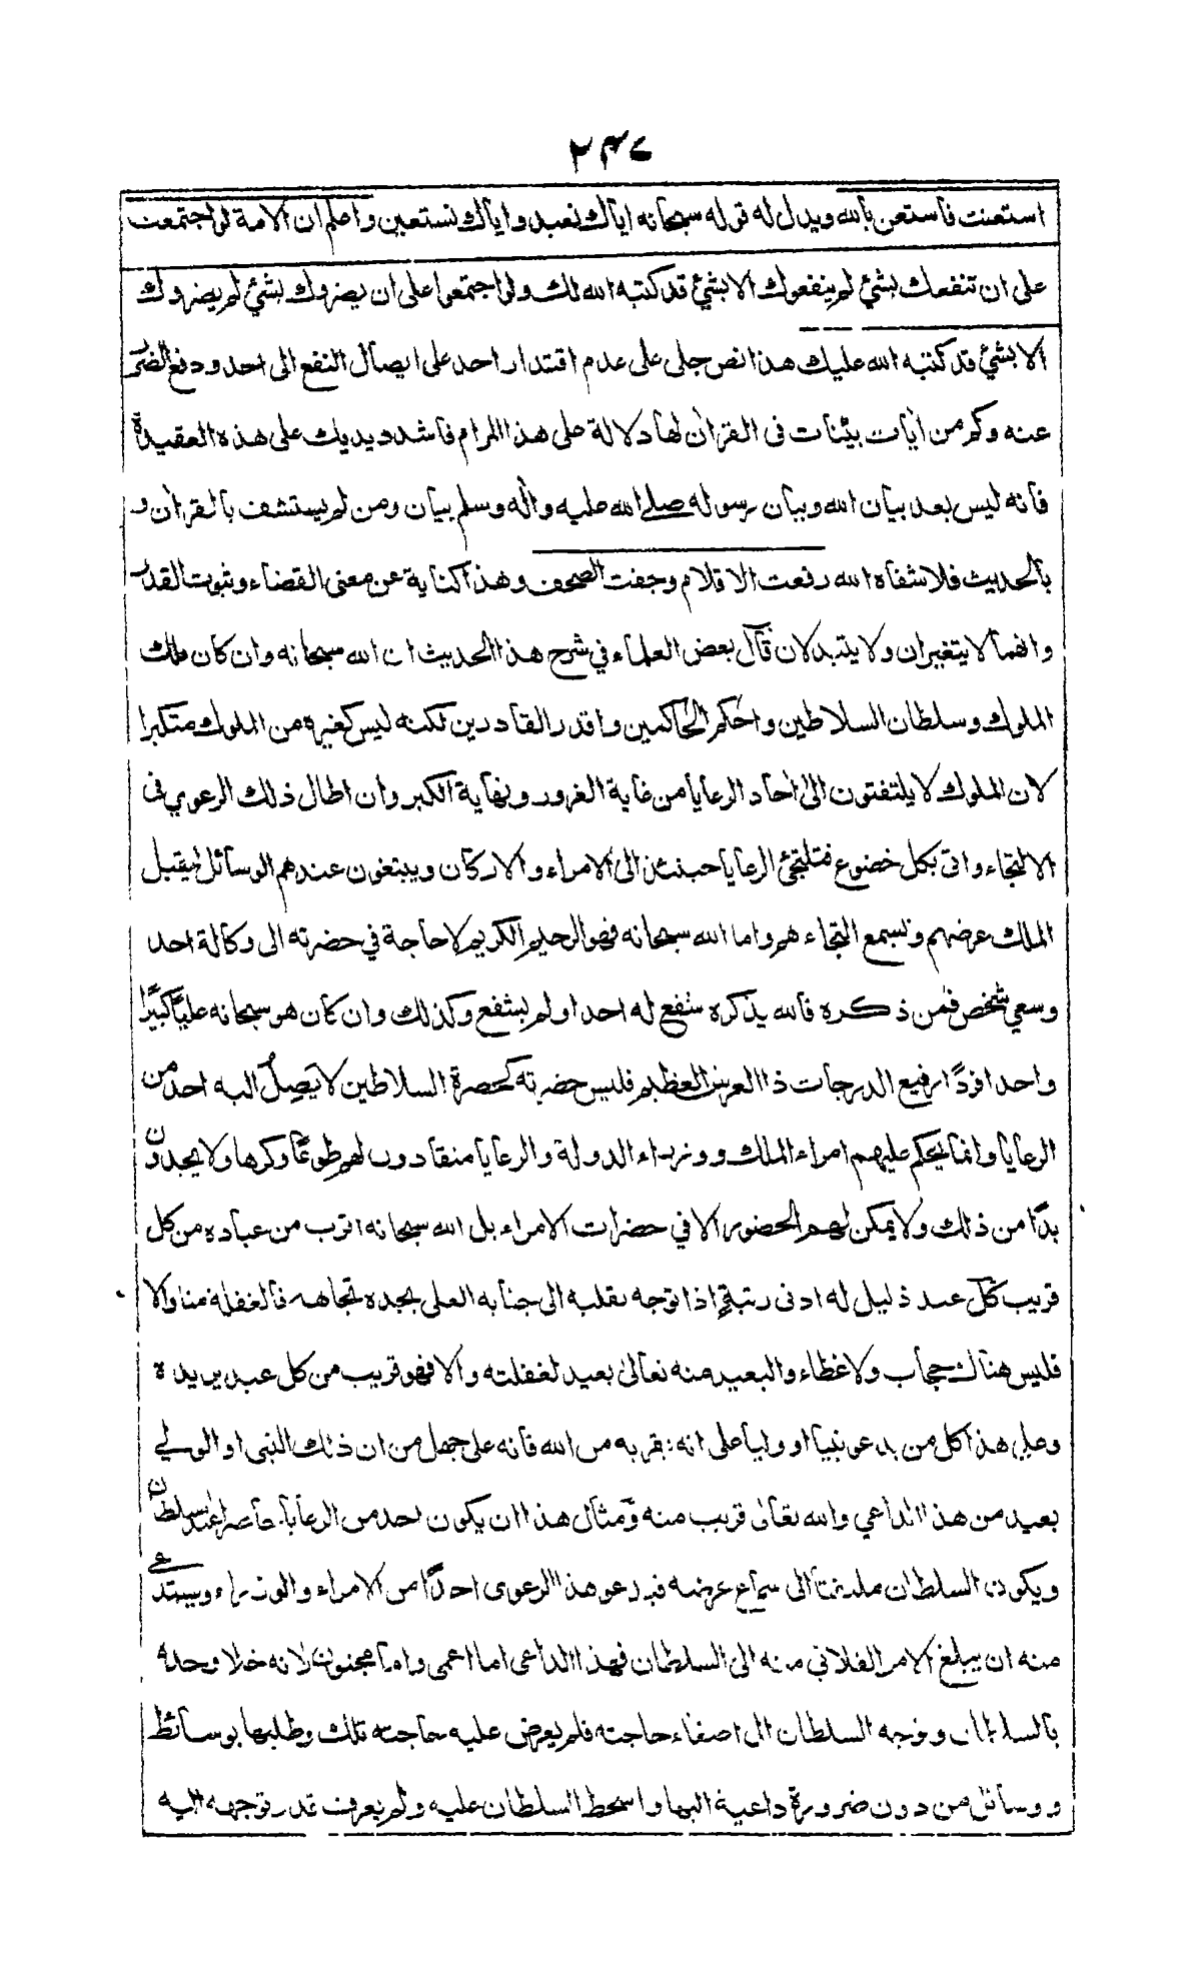 ٢٣٧
استعنت فاستعن بالله ويدل له قوله سبحانه اياك نعبد واياك نستعين واعلم ان الامة لو اجتمعت
على ان تنفعك بشئ لم ينفعوك الا بشئ قد كتبه الله لك ولو اجتمعوا على ان يضروك بشئ لم يضروك
الا بشئ قد كتبه الله عليك هذا نص جلى على عدم اقتدار احد على ايصال النفع الى احد ودفع الضر
عنه وكم من اٰيات بيّنات فى القراٰن لها دلالة على هذا المرام فاشدد يديك على هذه العقيدة
فانه ليس بعد بيان الله وبيان رسوله صلے الله عليه واٰله وسلم بيان ومن لم يستشف بالقراٰن و
بالحديث فلا شفاه الله رفعت الاقلام وجفت الصحف وهذا كناية عن معنى القضاء وثبوت القدر
وانهما لا يتغيران ولا يتبدلان قال بعض العلماء في شرح هذا الحديث ان الله سبحانه وان كان ملك
الملوك وسلطان السلاطين واحكم الحاكمين واقدر القادرين لكنه ليس كغيره من الملوك متكبرا
لان الملوك لا يلتفتون الى اٰحاد الرعايا من غاية الغرور ونهاية الكبر وان اطال ذلك الرعوي فى
الالتجاء واتى بكل خضوع فتلتجئ الرعايا حينئذ الى الامراء والاركان ويبتغون عندهم الوسائل ليقبل
الملك عرضهم ونسمع التجاءهم واما الله سبحانه فهو الرحيم الكريم لا حاجة في حضرته الى وكالة احد
وسعي شخص فمن ذكره فالله يذكره شفع له احد او لم يشفع وكذلك وان كان هو سبحانه عليًّا كبيرًا
واحدا فردًا رفيع الدرجات ذا العرش العظيم فليس حضرته كحضرة السلاطين لا يَصِلُ اليه احد من
الرعايا وانما يحكم عليهم امراء الملك ووزراء الدولة والرعايا منقادون لهم طوعًا وكرها ولا يجدون
بدًّا من ذلك ولا يمكن لهم الحضور الا في حضرات الامراء بل الله سبحانه اقرب من عباده من كل
قريب كل عبد ذليل له ادنى رتبة اذا توجه بقلبه الى جنابه العلى يجده تجاهه فالغفلة منا والا
فليس هناك حجاب ولا غطاء والبعيد منه تعالىٰ بعيد لغفلته والا فهو قريب من كل عبد يريده
وعلى هذا كل من يدعو نبيا او وليا على انه يقربه من الله فانه على جهل من ان ذلك النبى او الولي
بعيد من هذا الداعي والله تعالىٰ قريب منه ومثال هذا ان يكون احد من الرعايا حاضرا عند سلطان
ويكون السلطان ملتفتا الى سماع عرضه فيدعو هذا الرعوى احدًا من الامراء والوزراء ويستدعي
منه ان يبلغ الامر الفلاني منه الى السلطان فهذا الداعى اما اعمى واما مجنون لانه خلا وحده
بالسلطان وتوجه السلطان الى اصغاء حاجته فلم يعرض عليه حاجته تلك وطلبها بوسائط
ووسائل من دون ضرورة داعية اليها واسخط السلطان عليه ولم يعرف قدر توجهه اليه